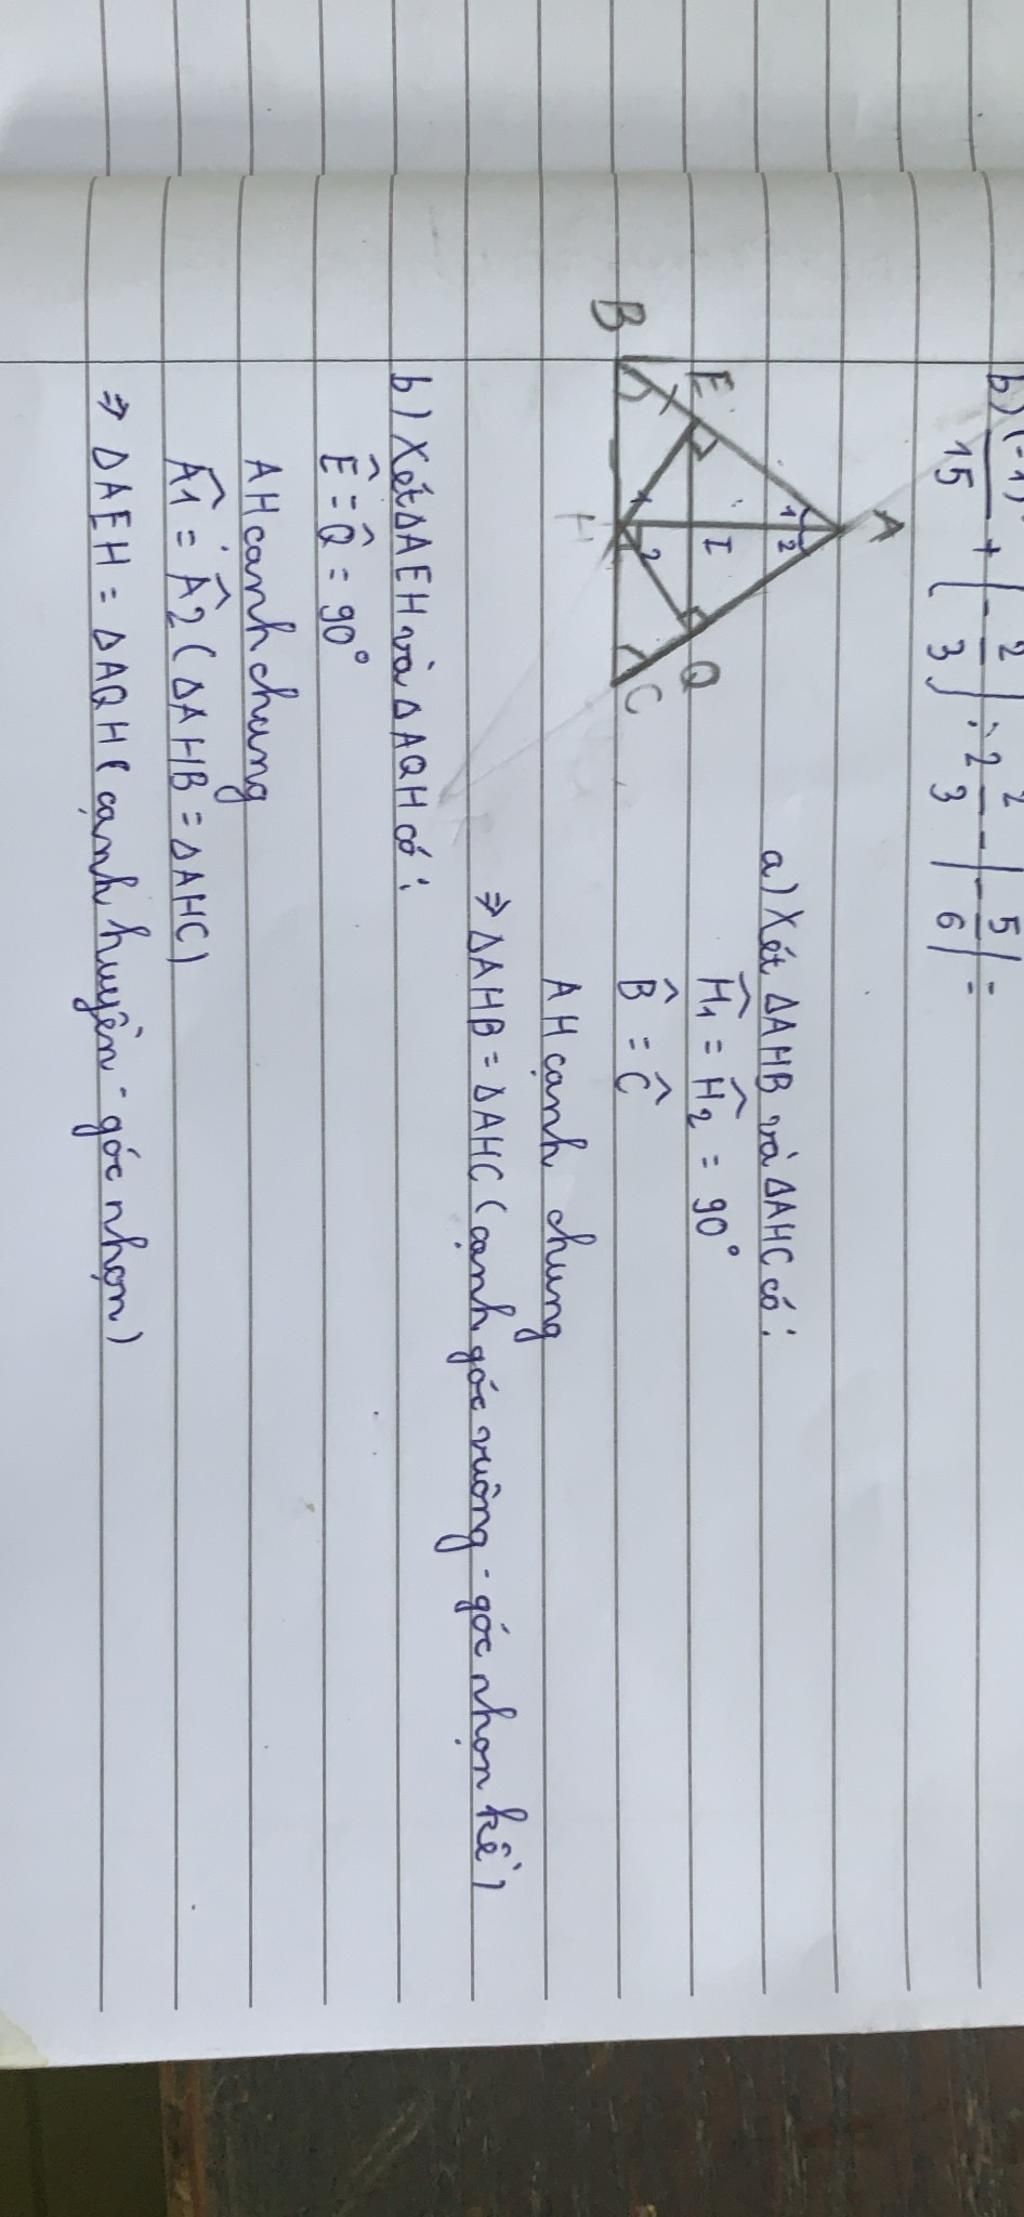 b) (-1) / 15 + (- 2/3) : 2 2/3 - |- 5/6| =
A
1 2
E I Q
1 2
B H C
a) Xét ΔAHB và ΔAHC có:
Ĥ1 = Ĥ2 = 90°
B̂ = Ĉ
AH cạnh chung
⇒ ΔAHB = ΔAHC (cạnh góc vuông - góc nhọn kề)
b) Xét ΔAEH và ΔAQH có:
Ê = Q̂ = 90°
AH cạnh chung
Â1 = Â2 (ΔAHB = ΔAHC)
⇒ ΔAEH = ΔAQH (cạnh huyền - góc nhọn)